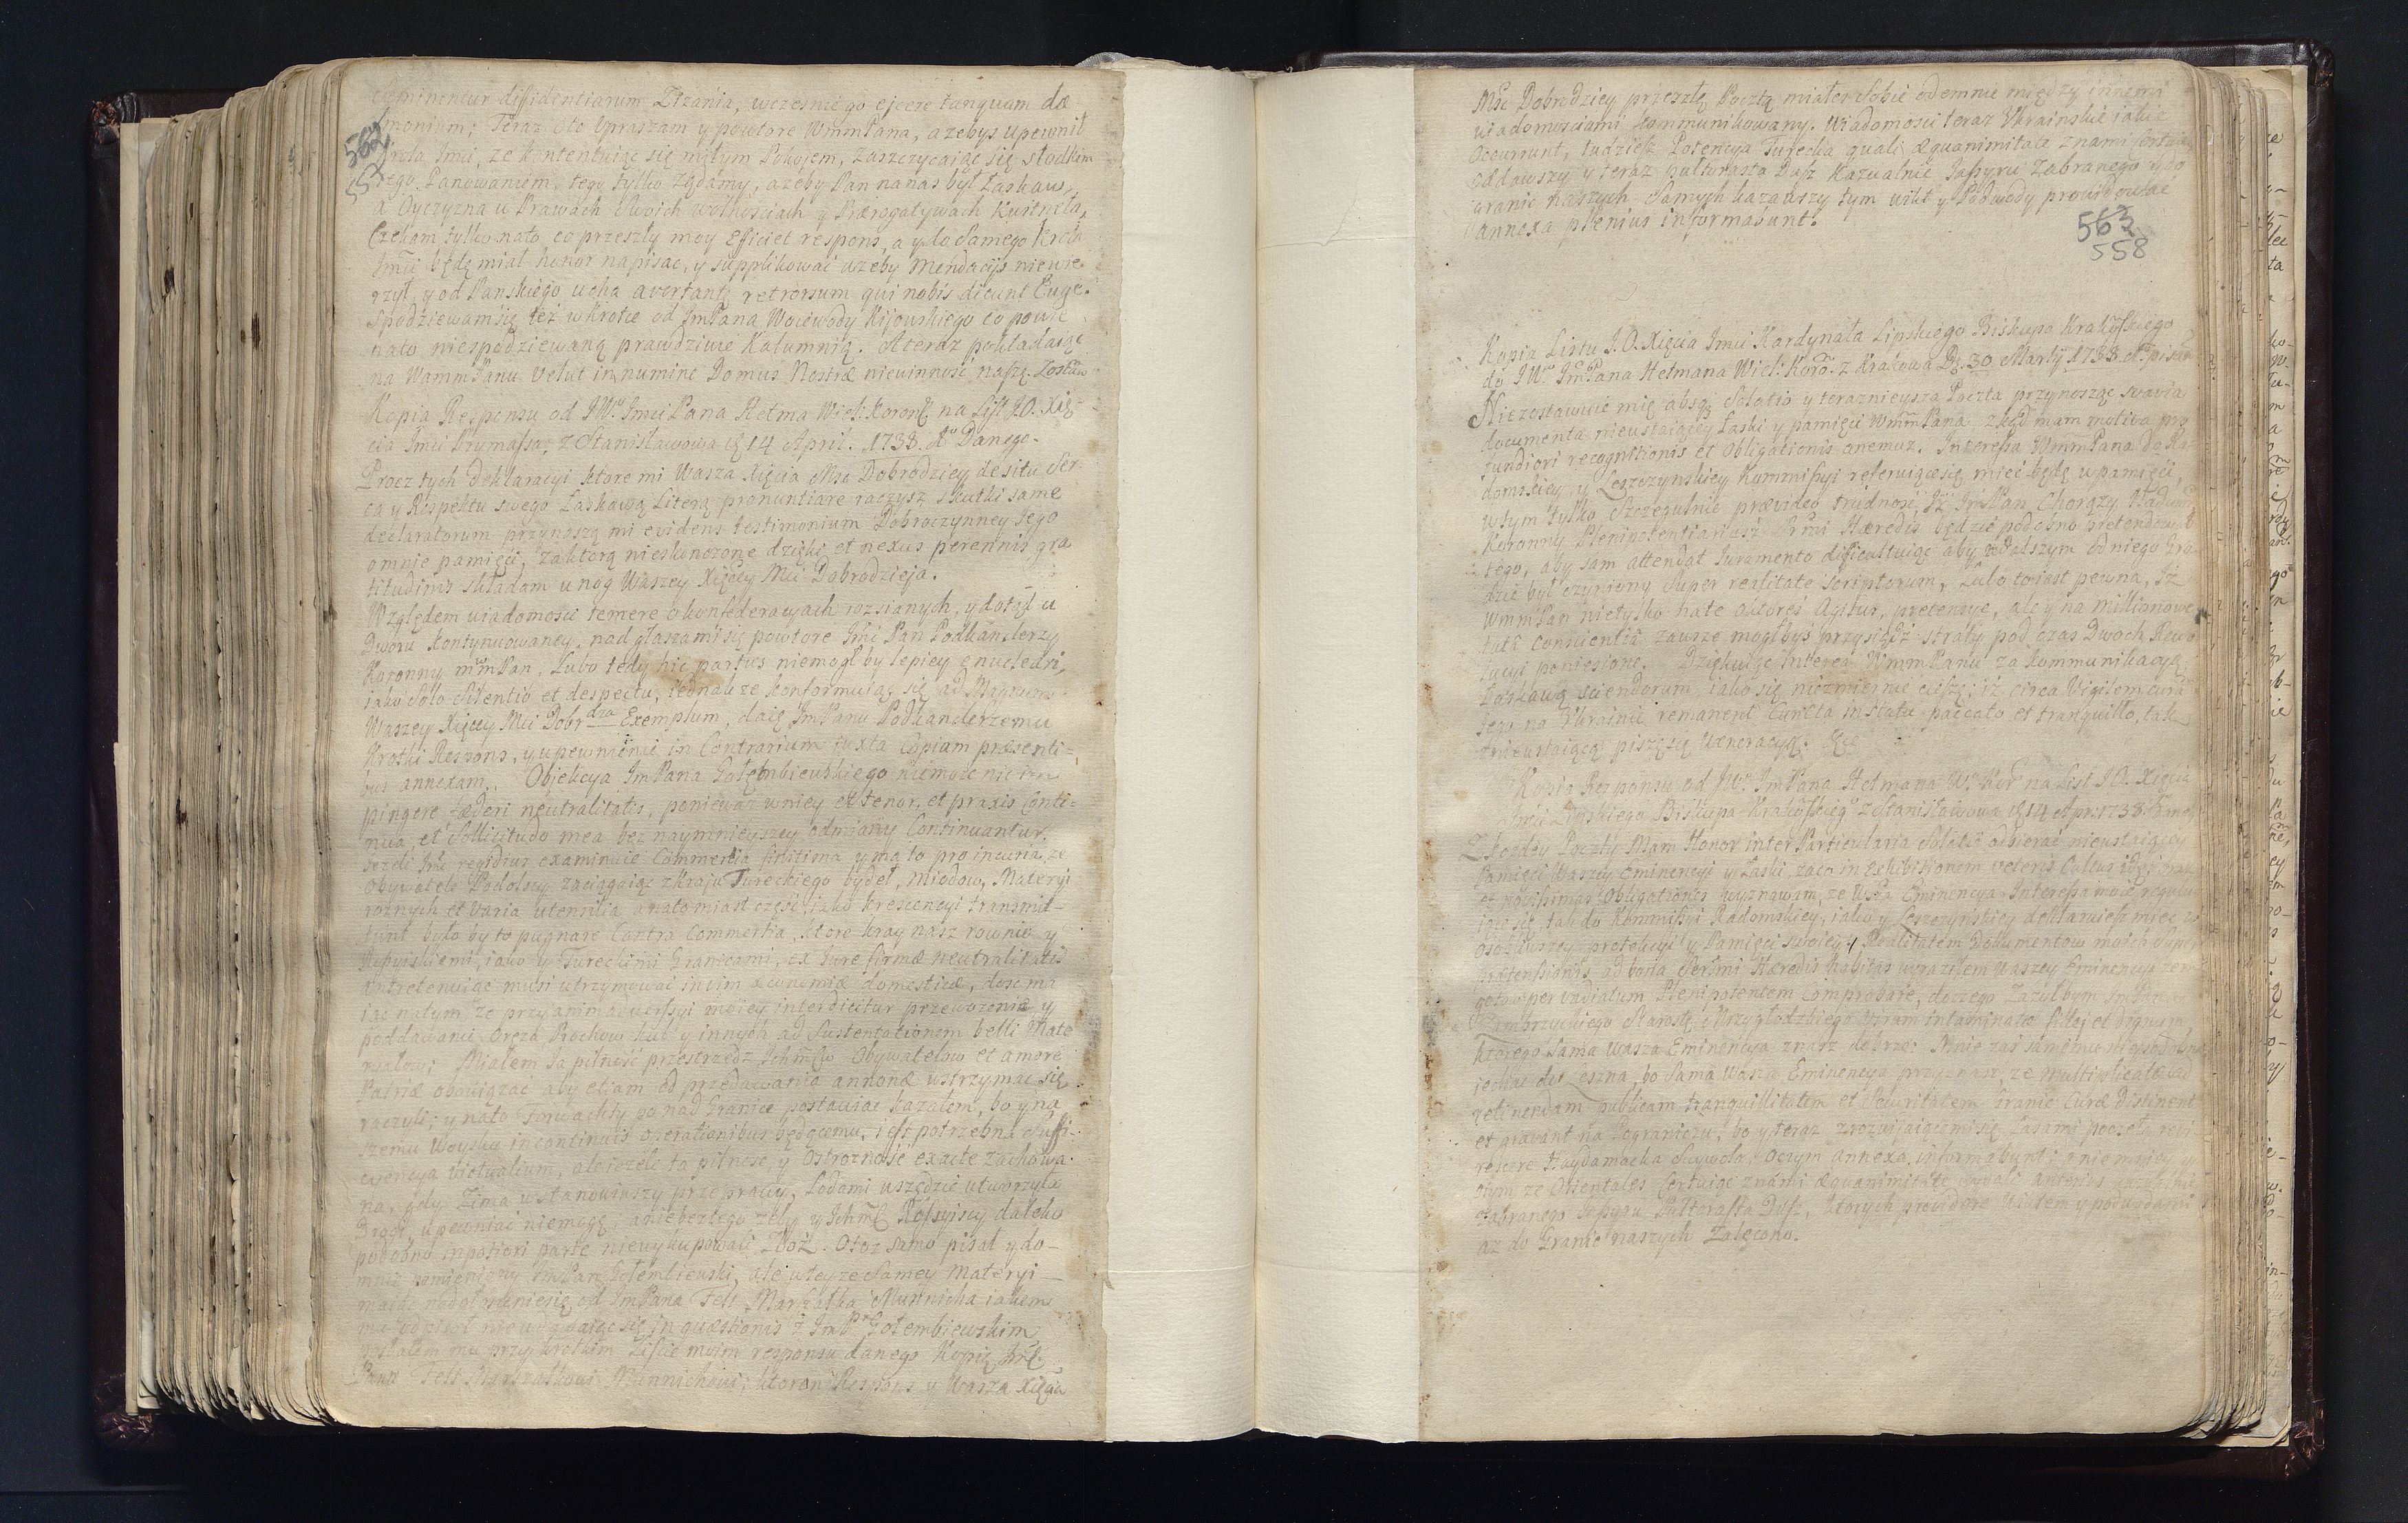 disseminentur diffidentiarum Zizania, wcześnie go ejcere tanquam dæ
monium; Teraz Oto Upraszam y powtore WmmPana, a zebys upewnił
Krola Imci, ze kontentuiąc się miłym Pokojem, zaszczycaiąc się słodkim
iego Panowaniem tego tylko żądamy, azeby Pan na nas był Łaskaw,
a Oyczyzna w Prawach swoich wolnosciach y Prærogatywach kwitnęła,
Czekam tylko na to co przeszły moy efficiet respons, a y do samego Krola
Imci będę miał honor napisac, y supplikowac azeby Mendacijs nie wie
rzył, y od Panskiego ucha avertantur retrorsum qui nobis dicunt Euge.
Spodziewam się tez wkrotce od ImPana Woiewody Kijowskiego co powie
na to niespodziewaną prawdziwie Kalumnią. A teraz pokładaiąc
na WammPanu velut in numine Domus Nostræ niewinnosc naszę. Zostaw
562
553
Kopia Responsu od JWo Imci Pana Hetma Wiel: Koron na List J.O. Xię
cia Imci Prymasa, z Stanisławowa D 14 April. 1738. Ao Danego.
Procz tych deklaracyi ktore mi Wasza Xięca Msc Dobrodziey de situ Ser
ca y Respektu swego Łaskawą Literą pronuntiare raczysz skutki same
declaratorum przynoszą mi evidens testimonium Dobroczynney Jego
o mnie pamięci, za ktorą nieskonczone dzięki et nexus perennis gra
titudinis składam u nog Waszey Xięcey Mci Dobrodzieja.
Względem wiadomosci temere o konfederacyach rozsianych, y dotąd u
Dworu kontynuowaney, nadgłaszami się powtore Imci Pan Podkanclerzy
Koronny mmPan. Lubo tedy hic partus niemogł by lepiey enucleari,
iako solo silentio et despectu, iednakze konformuiąc się ad Magnum
Waszey Xięcey Mci Dobrdza Exemplum, daię ImPanu Podkanclerzemu
Krotki Respons, y upewnienie in Contrarium juxta Copiam præsenti=
bus annexam. Objekcya ImPana Gołembiewskiego niemoze nic im
pingere fæderi neutralitatis, poniewaz w niey et tenor, et praxis Conti=
nua, et sollicitudo mea bez naymnieyszey odmiany Continuantur.
Jezeli Imc regidius examinuie Commercia finitima y ma to pro incuria, ze
Obywatele Podolscy zaciągaiąc z kraju Tureckiego bydeł, Miodow, Materyi
roznych et varia utensilia a natomiast częsc iaką krescencyi transmit-
tunt było by to pugnare Contra Commertia, ktore kray nasz rownie y
Rossyiskiemi, iako y Tureckimi Granicami, ex Jure firmæ neutralitatis
intretenuiąc musi utrzymowac in sim œconomiæ domesticæ, dosc ma
iąc na tym ze przy animadwersyi moiey interdicitur przewozenia y
poddawani Oręza Prochow kul y innych ad sustentationem belli Mate
ryałow; Miałem Ja pilność przestrzedz Ichmciow Obywatelow et amore
Patriæ obowiązac aby etiam od przedawania annonæ wstrzymac się
raczyli; y na to Forwachty ponad Granice postawiac kazałem, bo y na
szemu Woysku in continuis operationibus będącemu, iest potrzebna suffi-
ciencya victualium, ale iezeli ta pilnosc, y Ostroznosc exacte zachowa
na, gdy Zima ustanowiwszy przeprawy, Lodami wszędzie utworzyła
Drogi, upewniac niemogę, a niebez tego zeby y Ichmc Rossyiscy daleko
podobno in potiori parte niewykupowali Zboz. Otoz samo pisał y do-
mnie pomieniony ImPan Gołembiewski, ale w teyze samey Materyi
maiąc nadgłoszenie się od ImPana Felt Marszałka Munnicha iakiem
mu odpisał niewdaiąc się in quæstionis z ImPm Gołembiewskim,
posłałem mu przy krotkim Liscie moim responsu danego Kopią Imc
Panu Felt Marszałkowi Munnichowi; ktoren Respons y Wasza Xięca
Msc Dobrodziey przeszłą Pocztą miałes sobie odemnie między innemi
wiadomosciami kommunikowany. Wiadomosci teraz Ukrainskie iakie
Occurrunt, tudziesz Potencya Turecka quali æquanimitate z nami certuie
oddawszy y teraz pułtorasta Dusz kazualnie Jassyru Zabranego y do
granic naszych samych kazawszy tym wikt y Podwody prowidowac
annexa plenius informabunt.
563
558
Kopia Listu J.O. Xięcia Imci Kardynała Lipskiego Biskupa Krakoskiego
do JWo ImPana Hetmana Wiel: Koro: z Krakowa D. 30 Martij 1738. Ao pisan
Niezostawuie mię absq solatio y teraznieysza Poczta przynosząc suavia
documenta nieustaiącey Łaski y pamięci WmmPana zkąd mam motiva pro
fundiori recognitionis et Obligationis animuz. Interessa WmmPana do Ra
domskiey y Leszczynskiey Kommissyi referuiące się miec będę w pamięci,
w tym tylko szczegulnie prævideo trudnosc, Iż ImPan Chorązy Nadwor
Koronny Plenipotentiariusz Srmi Hæredis będzie podobno pretendował
tego, aby sam attendat Juramento difficultuiąc aby w dalszym od niego Gro
dzie był czyniony super realitate scriptorum, Lubo to iest pewna, Iz
WmmPan nietylko na te o ktoreś Agitur, pretensye, ale y na millionowe
tutâ conscientiâ zawsze mogłbys przysiądz straty pod czas Dwoch Rewo
lucyi poniesione. Dziękuiąc interea WmmPanu za kommunikacyą
Łaskawą sciendorum iako się niezmiernie cieszę, iz circa Vigilem curâ
Jego na Ukrainie remanent Cuncta in statu paccato et tranquillo, tak
z nieustaiącą piszę się weneracyą. &c
Kopia Responsu od JWo ImPana Hetmana Wo Kor na List J.O. Xięcia
Imci Lipskiego Biskupa Krakoskieg z Stanisławowa D 14 Apr: 1738.
Z kozdey Poczty Mam Honor inter Particularia solatia odbierac nieustaiącey
Pamięci Waszey Eminencyi y Łaski, zaco in exhibitionem veteris Cultus
et novissimas Obligationes wyznawam, ze Wsza Eminencya Interessa moie regulu
iące się tak do Kommissyi Radomskiey, iako y Leszczynskiey deklaruiesz miec w
osobliwszey protekcyi y Pamięci swoiey. Realitatem dokumentow moich super
prætensionis ad bona Sermi Hæredis habitas wyraziłem Waszey Eminencyi zem
gotow per vadiatum Plenipotentem Comprobare, do czego Zazył bym ImPana
Starostę virum intaminatæ fidei et dignum,
ktorego sama Wasza Eminencya znasz dobrze: Mnie zas samemu niepodobna
iechac do Leszna, bo sama Wasza Eminencya przyznasz, ze multiplicatæ ad
retinendam publicam tranquillitatem et securitatem Granic Curæ distinent
et gravant na Pograniczu, bo y teraz z rozwijaiącemi się Lasami poczęła revi
rescere Haydamacka swywola, o czym annexa informabunt: a niemniey y
otym ze Orientales certuiąc z nami æquanimitate oddali
zabranego Jassyru Pułtorasta Dusz, ktorych providere Wiktem y podwodami
az do Granic naszych Zalecono.